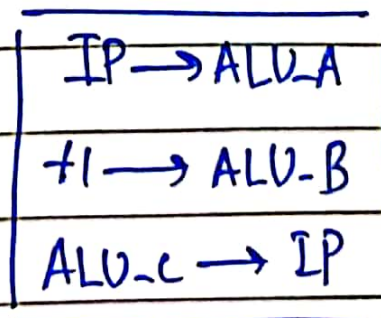 IP → ALU_A
+1 → ALU-B
ALU-C → IP